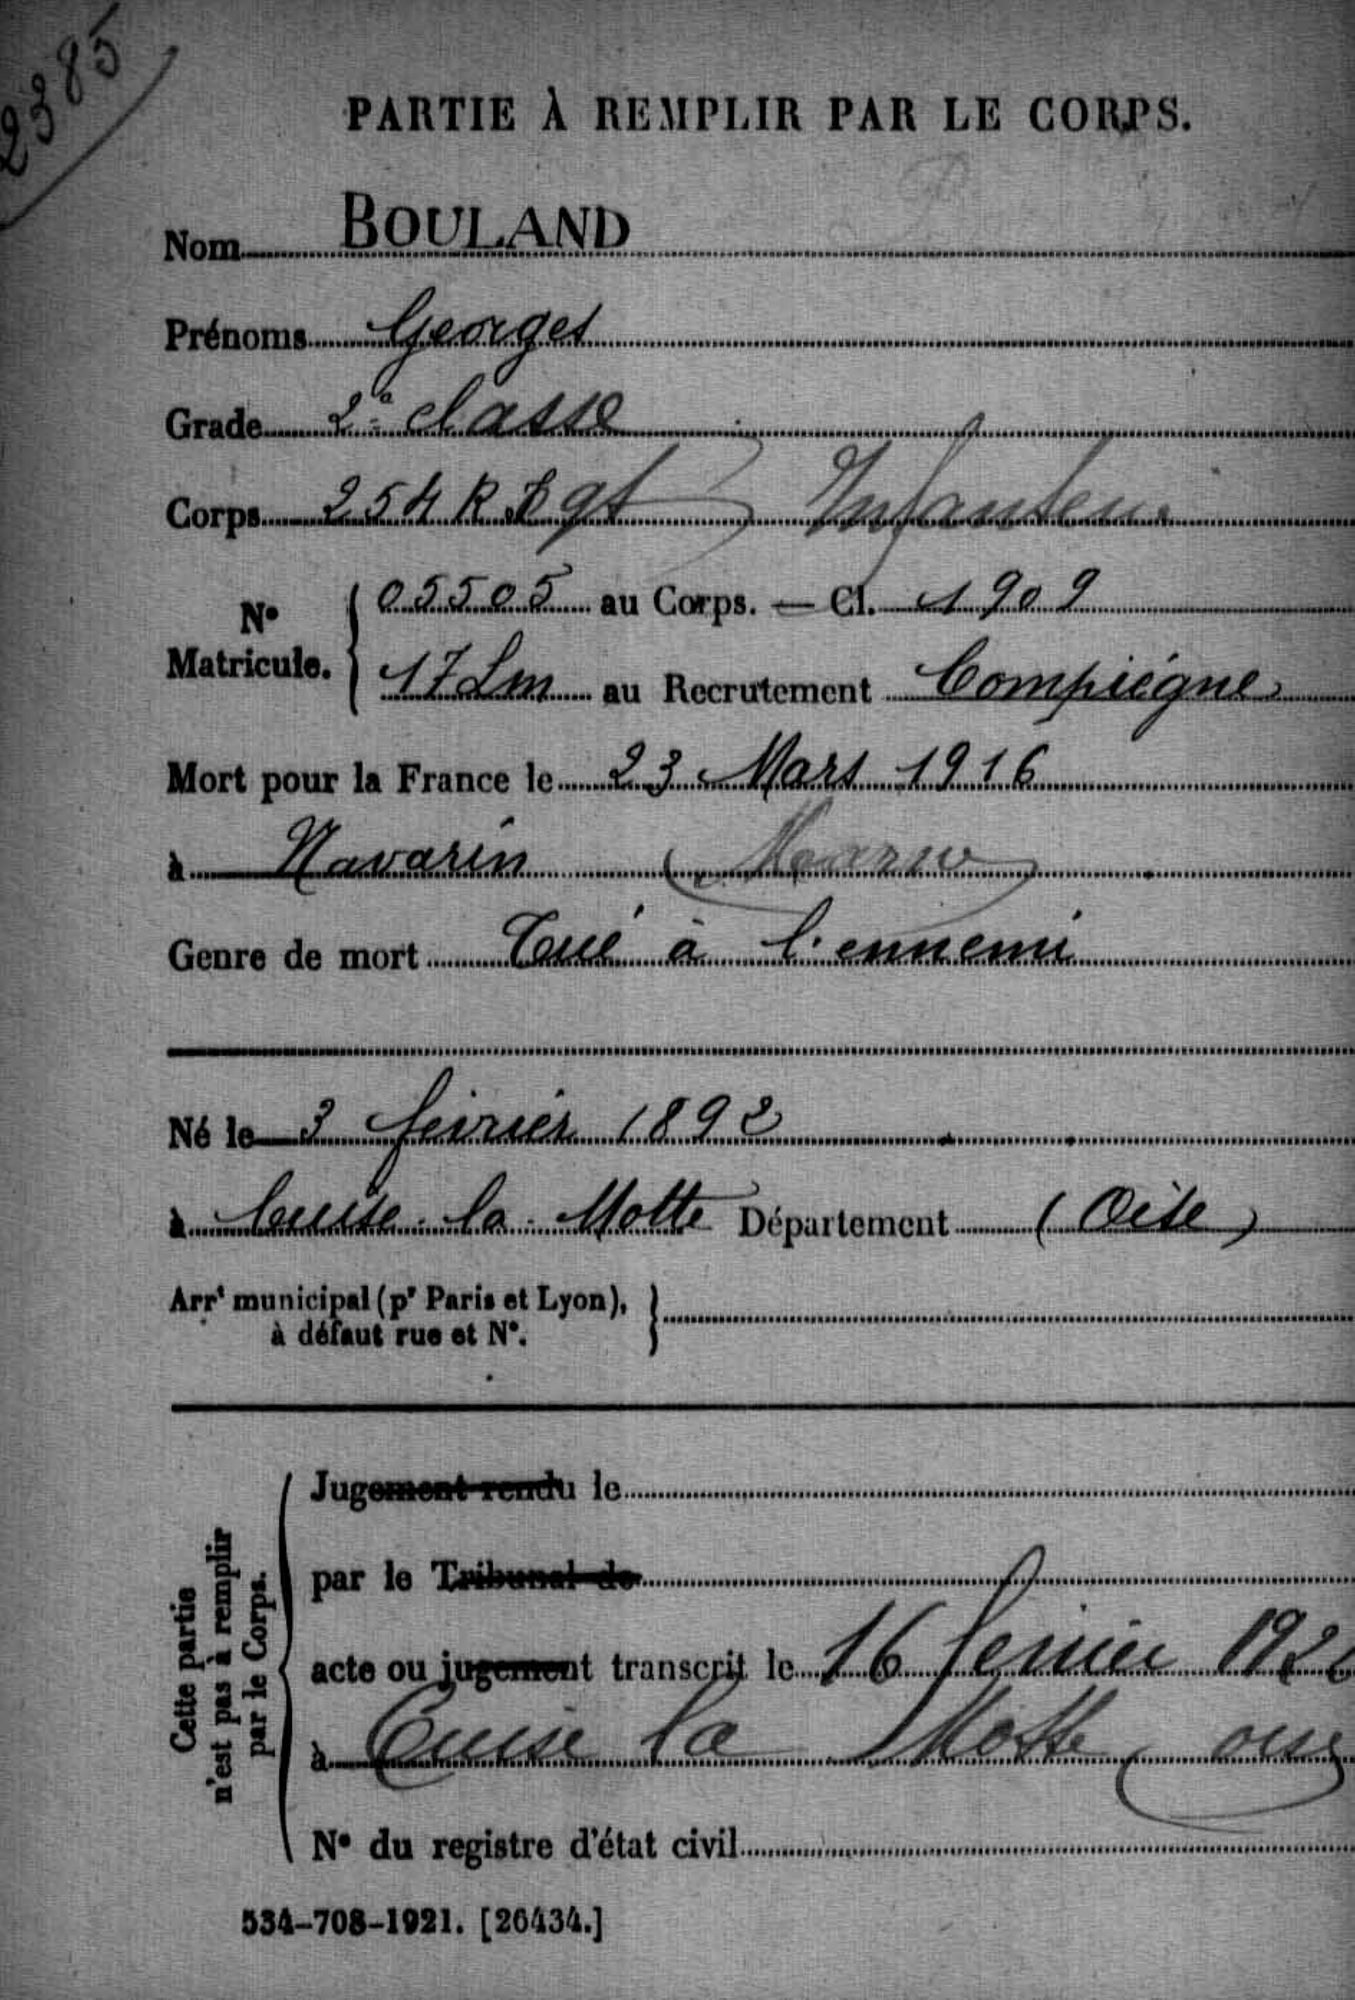 2385
PARTIE À REMPLIR PAR LE CORPS.
Nom BOULAND
Prénoms Georges
Grade 2e classe
Corps 254 R Rgt Infanterie
No Matricule. 05505 au Corps. — Cl. 1909
17 Lm au Recrutement Compiégne
Mort pour la France le 23 Mars 1916
à Navarin (Marne)
Genre de mort Tué à l'ennemi
Né le 3 février 1892
à Cuise-la-Motte Département (Oise)
Arrt municipal (pr Paris et Lyon),
à défaut rue et No.
Cette partie
n'est pas à remplir
par le Corps.
Jugement rendu le
par le Tribunal de
acte ou jugement transcrit le 16 fevrier 192
à Cuise la Motte (oise)
No du registre d'état civil
534-708-1921. [26434.]